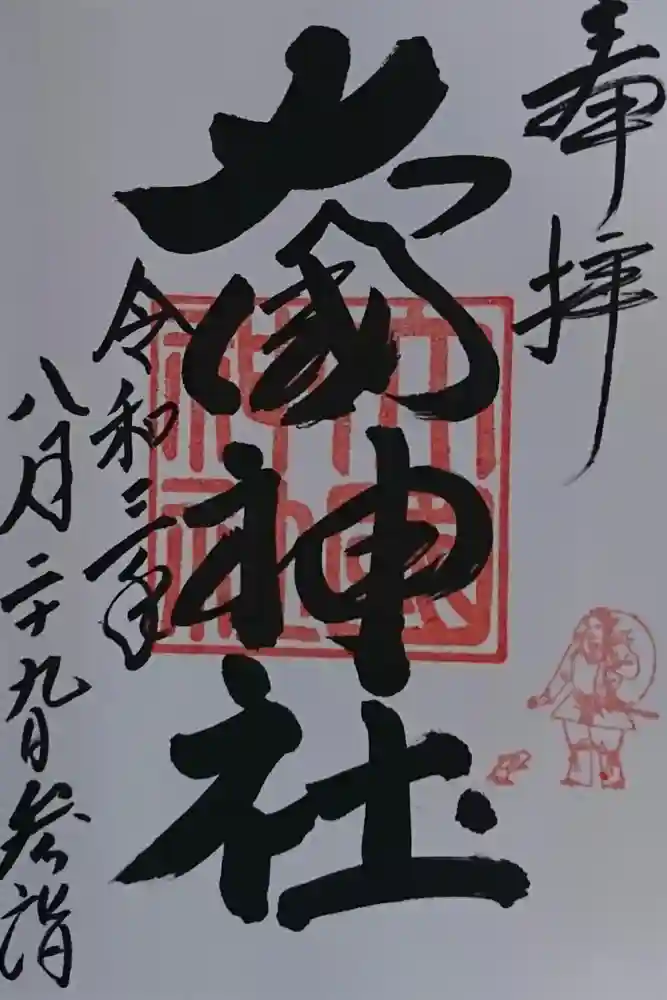 奉拝
大國神社
大國神社
令和三年
八月二十九日参詣